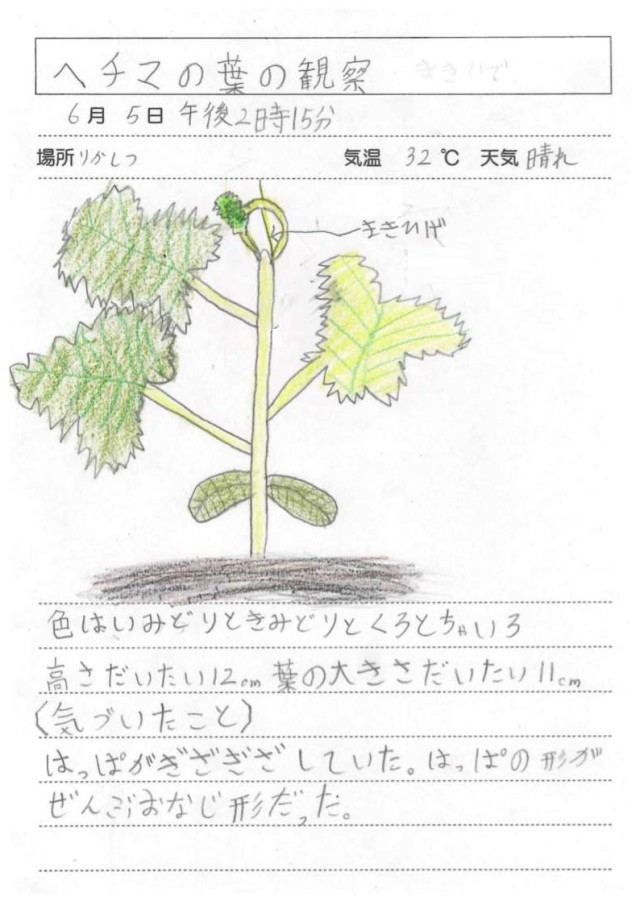 ヘチマの葉の観察
6月 5日 午後2時15分
場所りかしつ 気温 32℃ 天気 晴れ
まきひげ
色はいみどりときみどりとくろとちゃいろ
高さだいたい12cm 葉の大きさだいたい11cm
(気づいたこと)
はっぱがぎざぎざしていた。はっぱの形が
ぜんぶおなじ形だった。